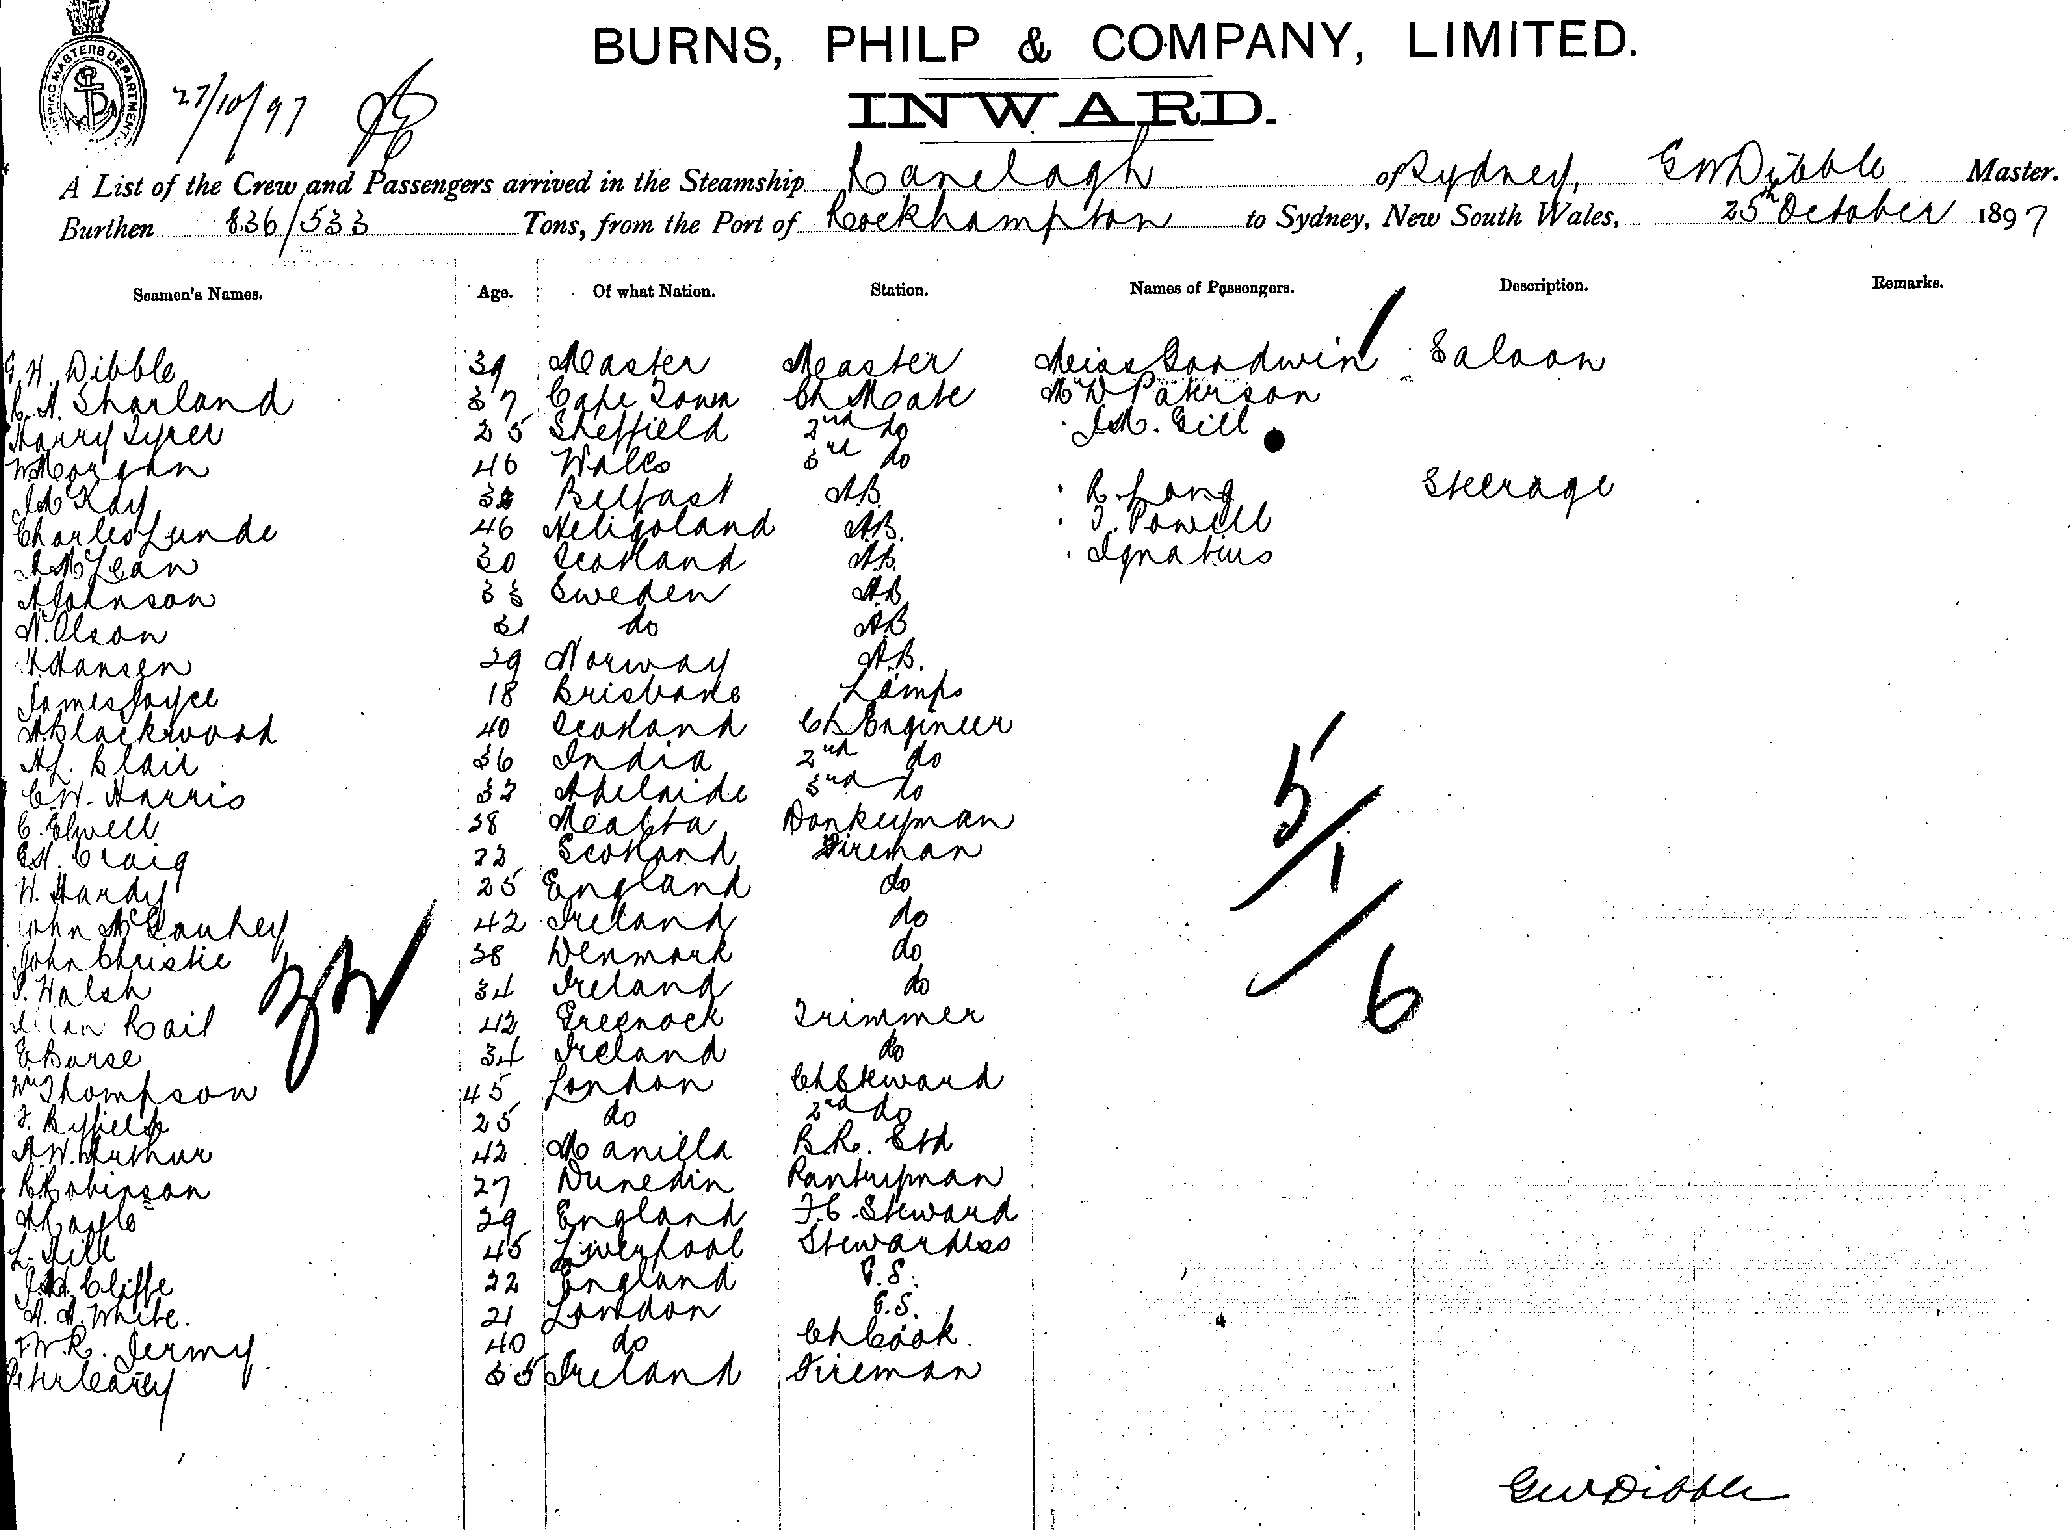 BURNS, PHILP & COMPANY, LIMITED.
INWARD.
27/10/97
A List of the Crew and Passengers arrived in the Steamship Ranelagh of Sydney, G W Dibble Master.
Burthen 836/533 Tons, from the Port of Rockhampton to Sydney, New South Wales, 25th October 1897
Seamen's Names. Age. Of what Nation. Station. Names of Passengers. Description. Remarks.
G. W. Dibble 39 Master Master Miss Goodwin Saloon
C. A. Sharland 37 Cape Town Ch Mate Mr D Paterson
Harry Tyrer 25 Sheffield 2nd do J M. Gill
W Morgan 46 Wales 3rd do
J McKay Belfast AB R. Long Steerage
Charles Lunde 46 Heligoland A.B. T. Powell
McLean 30 Scotland AB. Ignatius
A Johnson 33 Sweden AB
N. Olson 31 do AB
H Hansen 29 Norway A.B.
James Joyce 18 Brisbane Lamps
A Blackwood 40 Scotland Ch Engineer
A L. Blair 36 India 2nd do
C. W. Harris 32 Adelaide 3rd do
C. Elwell 38 Malta Donkeyman
Craig 22 Scotland Fireman
W. Hardy 25 England do
John 42 Ireland do
John Christie 38 Denmark do
Walsh 34 Ireland do
Rail 42 Greenock Trimmer
E. 34 Ireland do
Wm Thompson 45 London Ch Steward
F. Byfield 25 do 2nd do
A. W. Arthur 42 Manilla B.R. Std
R Robinson 27 Dunedin Pantryman
29 England F.C. Steward
L. Hill 45 Liverpool Stewardess
Cliffe 22 England G.S.
A. A. White. 21 London G.S.
W. R. Jermy 40 do Ch Cook.
Peter Carey 35 Ireland Fireman
32
5/1/6
G W Dibble